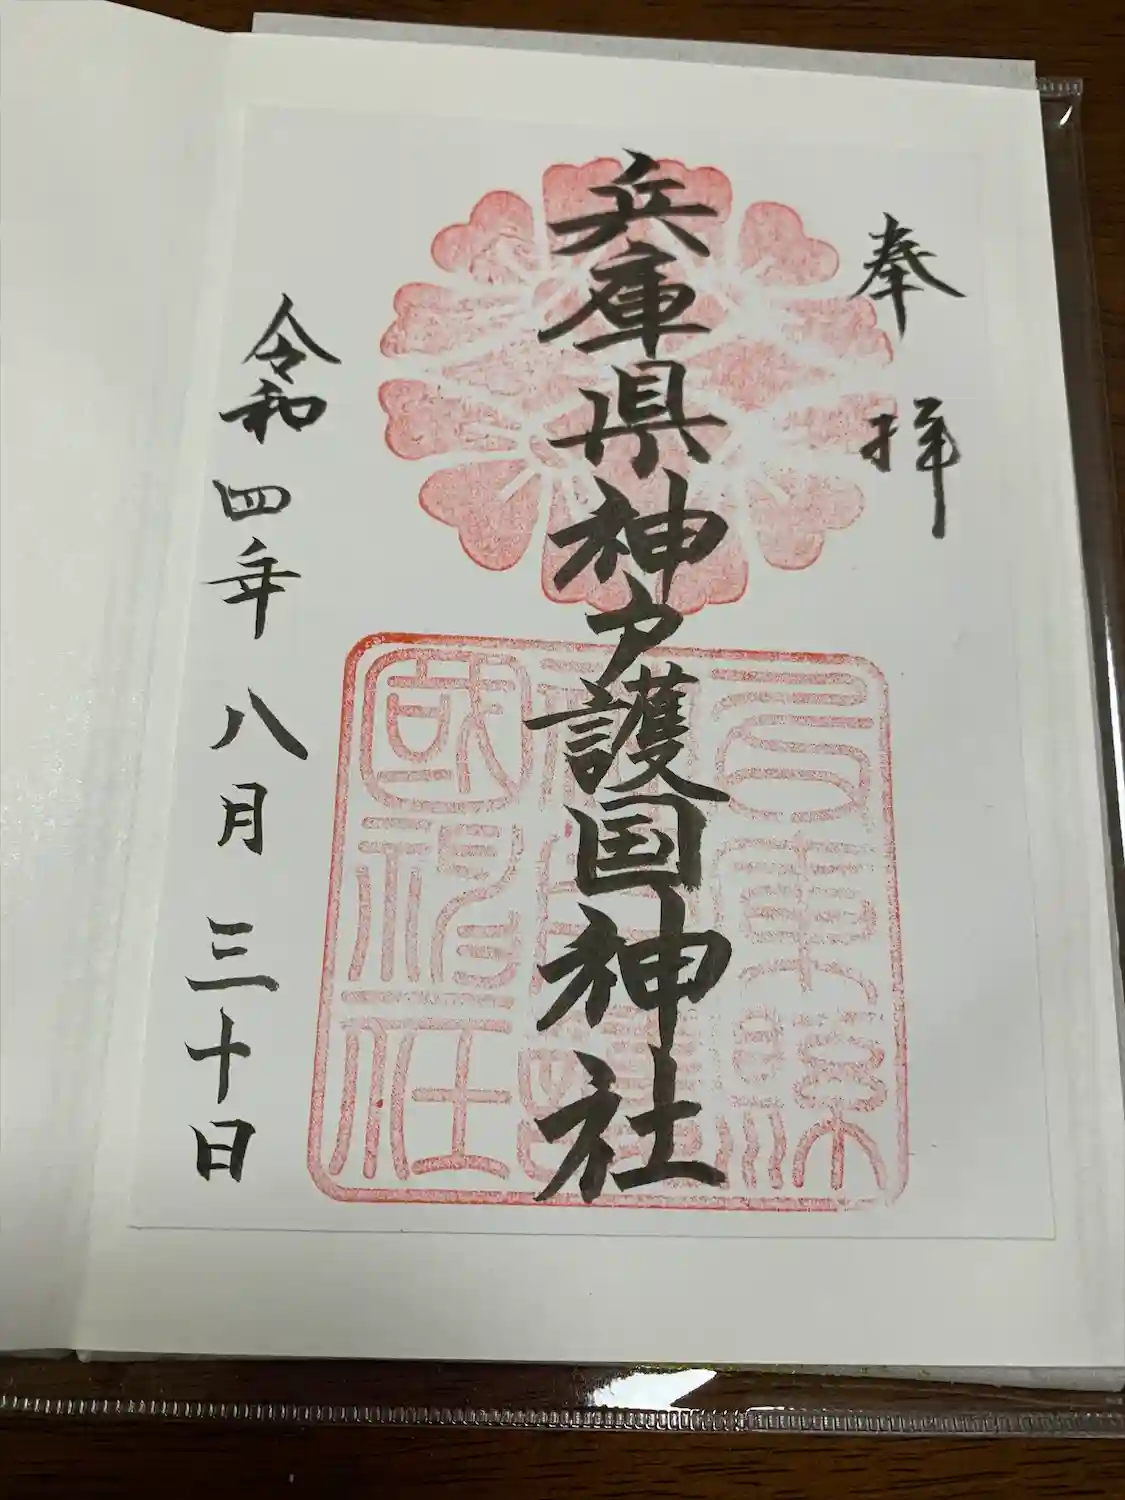 奉拝
兵庫県神戸護国神社
令和四年八月三十日
兵庫縣
神戸護
國神社